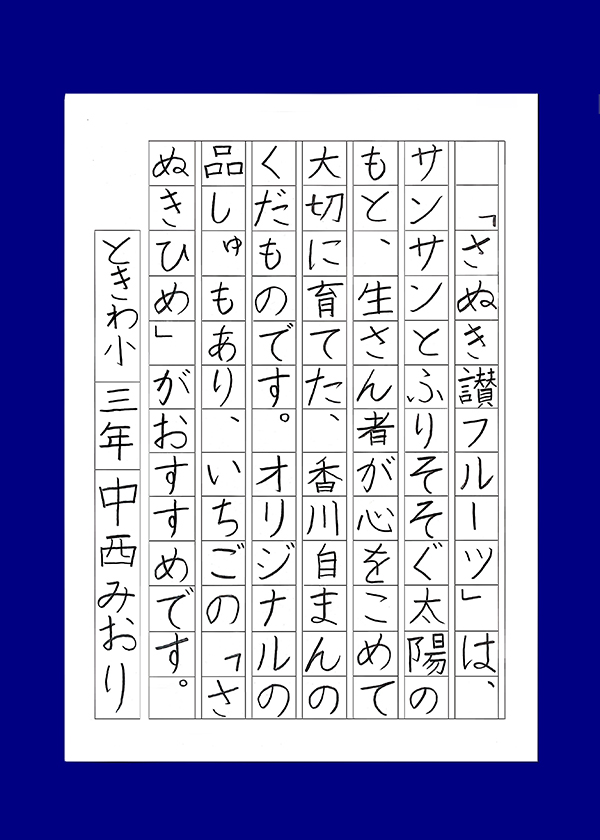 「さぬき讃フルーツ」は、
サンサンとふりそそぐ太陽の
もと、生さん者が心をこめて
大切に育てた、香川自まんの
くだものです。オリジナルの
品しゅもあり、いちごの「さ
ぬきひめ」がおすすめです。
ときわ小 三年 中西みおり